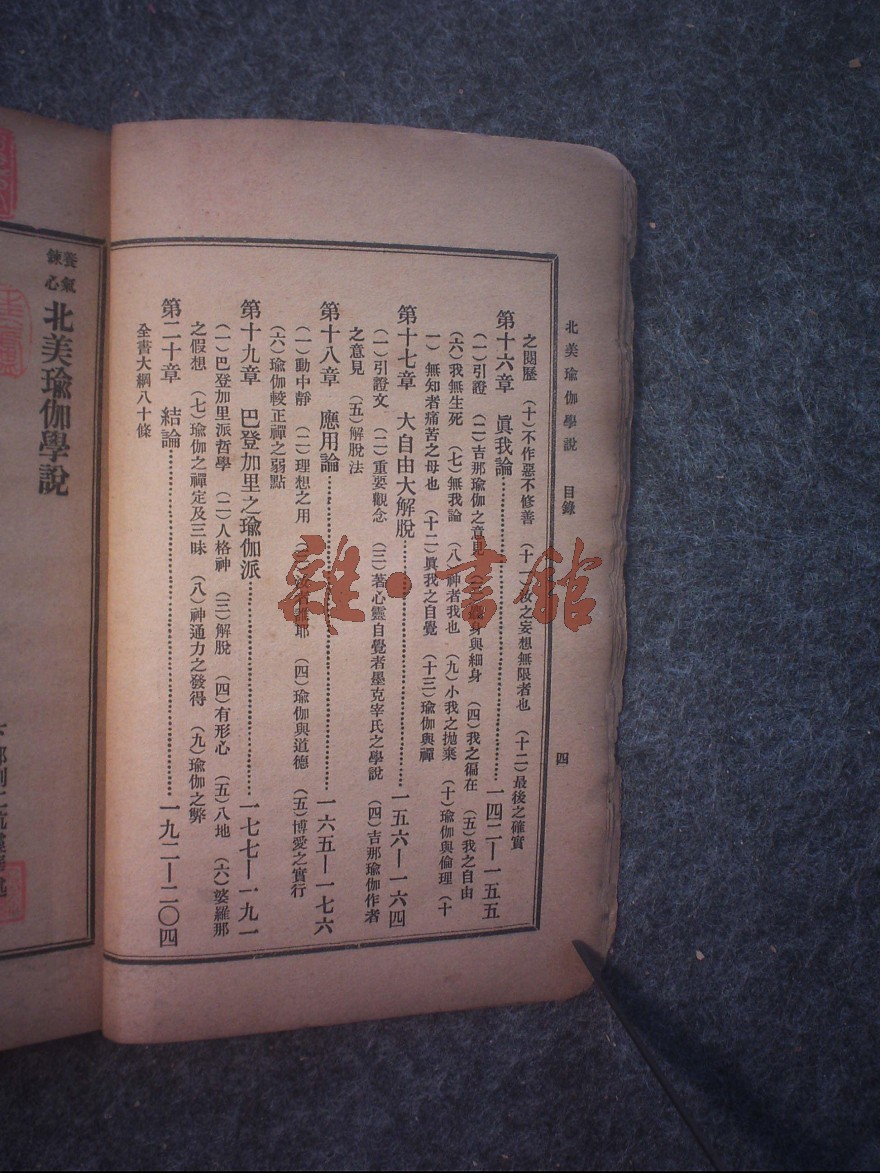 北美瑜伽學說　目錄
四
之閱歷　（十）不作惡不修善　（十一）汝之妄想無限者也　（十二）最後之確實
第十六章　眞我論…………一四二—一五五
（一）引證　（二）吉那瑜伽之意見　（三）麤身與細身　（四）我之徧在　（五）我之自由
（六）我無生死　（七）無我論　（八）神者我也　（九）小我之拋棄　（十）瑜伽與倫理　（十
一）無知者痛苦之母也　（十二）眞我之自覺　（十三）瑜伽與禪
第十七章　大自由大解脫…………一五六—一六四
（一）引證文　（二）重要觀念　（三）著心靈自覺者墨克宰氏之學說　（四）吉那瑜伽作者
之意見　（五）解脫法
第十八章　應用論…………一六五—一七六
（一）動中靜　（二）理想之用　（三）汝者誰耶　（四）瑜伽與道德　（五）博愛之實行
（六）瑜伽較正禪之弱點
第十九章　巴登加里之瑜伽派…………一七七—一九一
（一）巴登加里派哲學　（二）人格神　（三）解脫　（四）有形心　（五）八地　（六）婆羅那
之假想　（七）瑜伽之禪定及三昧　（八）神通力之發得　（九）瑜伽之弊
第二十章　結論…………一九二—二〇四
全書大綱八十條
養氣
鍊心
北美瑜伽學說
雜·書館